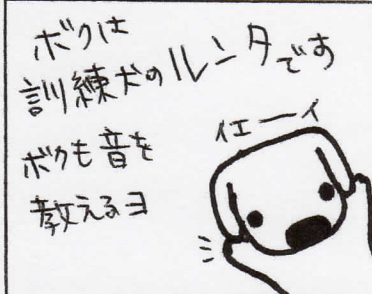 ボクは
訓練犬のルンタです
ボクも音を
教えるヨ
イエーイ